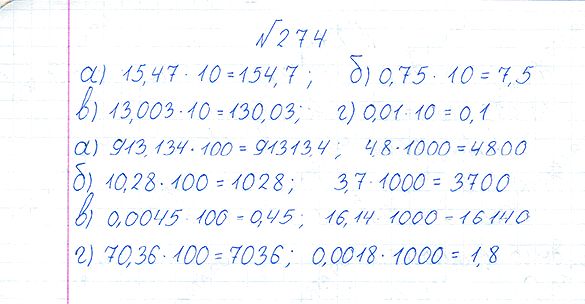 №274
а) 15,47 · 10 = 154,7 ; б) 0,75 · 10 = 7,5
в) 13,003 · 10 = 130,03; г) 0,01 · 10 = 0,1
а) 913,134 · 100 = 91313,4 ; 4,8 · 1000 = 4800
б) 10,28 · 100 = 1028 ; 3,7 · 1000 = 3700
в) 0,0045 · 100 = 0,45 ; 16,14 · 1000 = 16140
г) 70,36 · 100 = 7036 ; 0,0018 · 1000 = 1,8